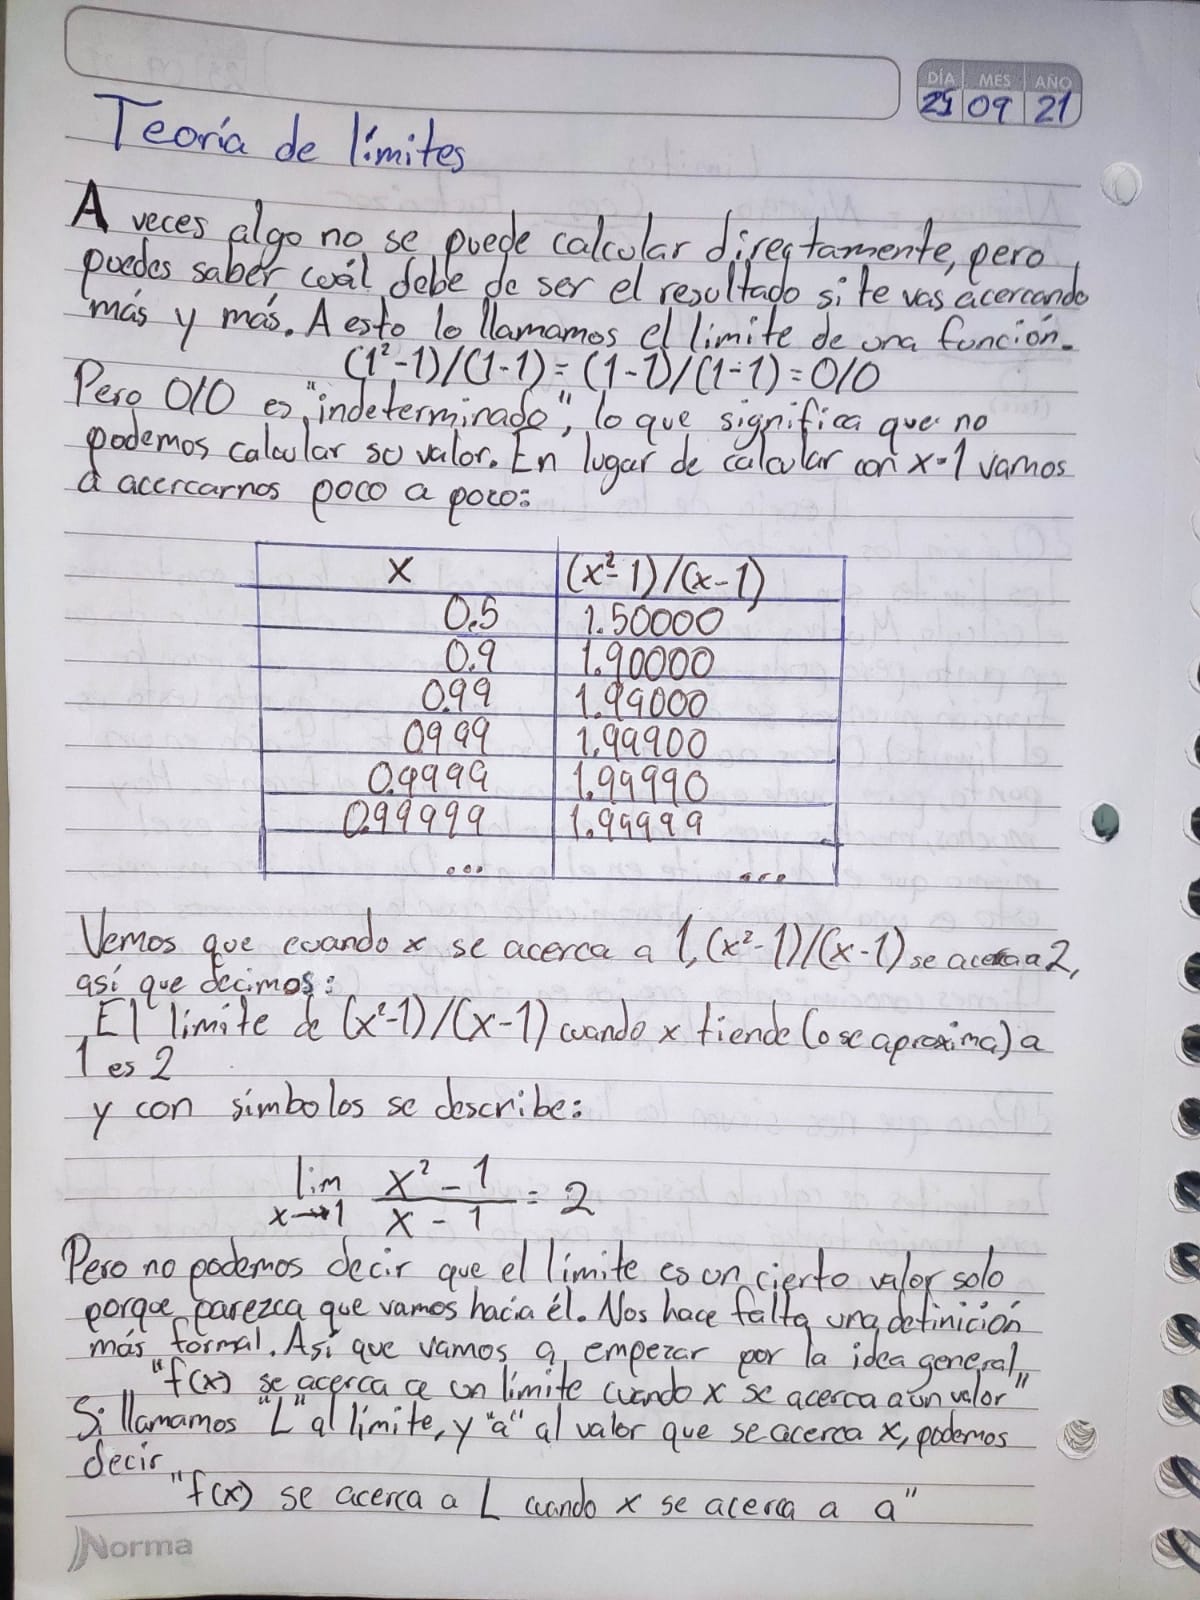 DÍA MES AÑO
25 09 21
Teoría de límites
A veces algo no se puede calcular directamente, pero
puedes saber cuál debe de ser el resultado si te vas acercando
más y más. A esto lo llamamos el límite de una función.
(1²-1)/(1-1)=(1-1)/(1-1)=0/0
Pero 0/0 es "indeterminado", lo que significa que no
podemos calcular su valor. En lugar de calcular con x=1 vamos
a acercarnos poco a poco:
x (x²-1)/(x-1)
0.5 1.50000
0.9 1.90000
0.99 1.99000
0999 1.99900
0.9999 1.99990
0.99999 1.99999
... ...
Vemos que cuando x se acerca a 1, (x²-1)/(x-1) se acerca a 2,
así que decimos:
El límite de (x²-1)/(x-1) cuando x tiende (o se aproxima) a
1 es 2
y con símbolos se describe:
lim x² - 1
x→1 x - 1 = 2
Pero no podemos decir que el límite es un cierto valor solo
porque parezca que vamos hacia él. Nos hace falta una definición
más formal. Así que vamos a empezar por la idea general
"f(x) se acerca a un límite cuando x se acerca a un valor"
Si llamamos "L" al límite, y "a" al valor que se acerca x, podemos
decir
"f(x) se acerca a L cuando x se acerca a a"
Norma